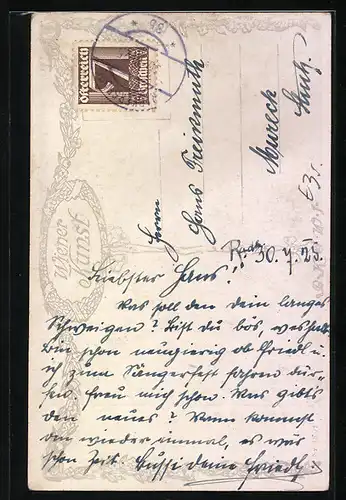 Österreich
7
Groschen
Wiener
Kunst
Herrn
Hans
Mureck
30. 7. 25.
Liebster Hans!
Was soll den dein langes
Schweigen? Bist du bös, weshalb.
Bin schon neugierig ob Friedl u.
ich zum Sängerfest fahren dür-
fen. Freu mich schon. Was gibts
den neues? Wann kommst
den wieder einmal, es wär
schon Zeit. Bussi deine Friedl.